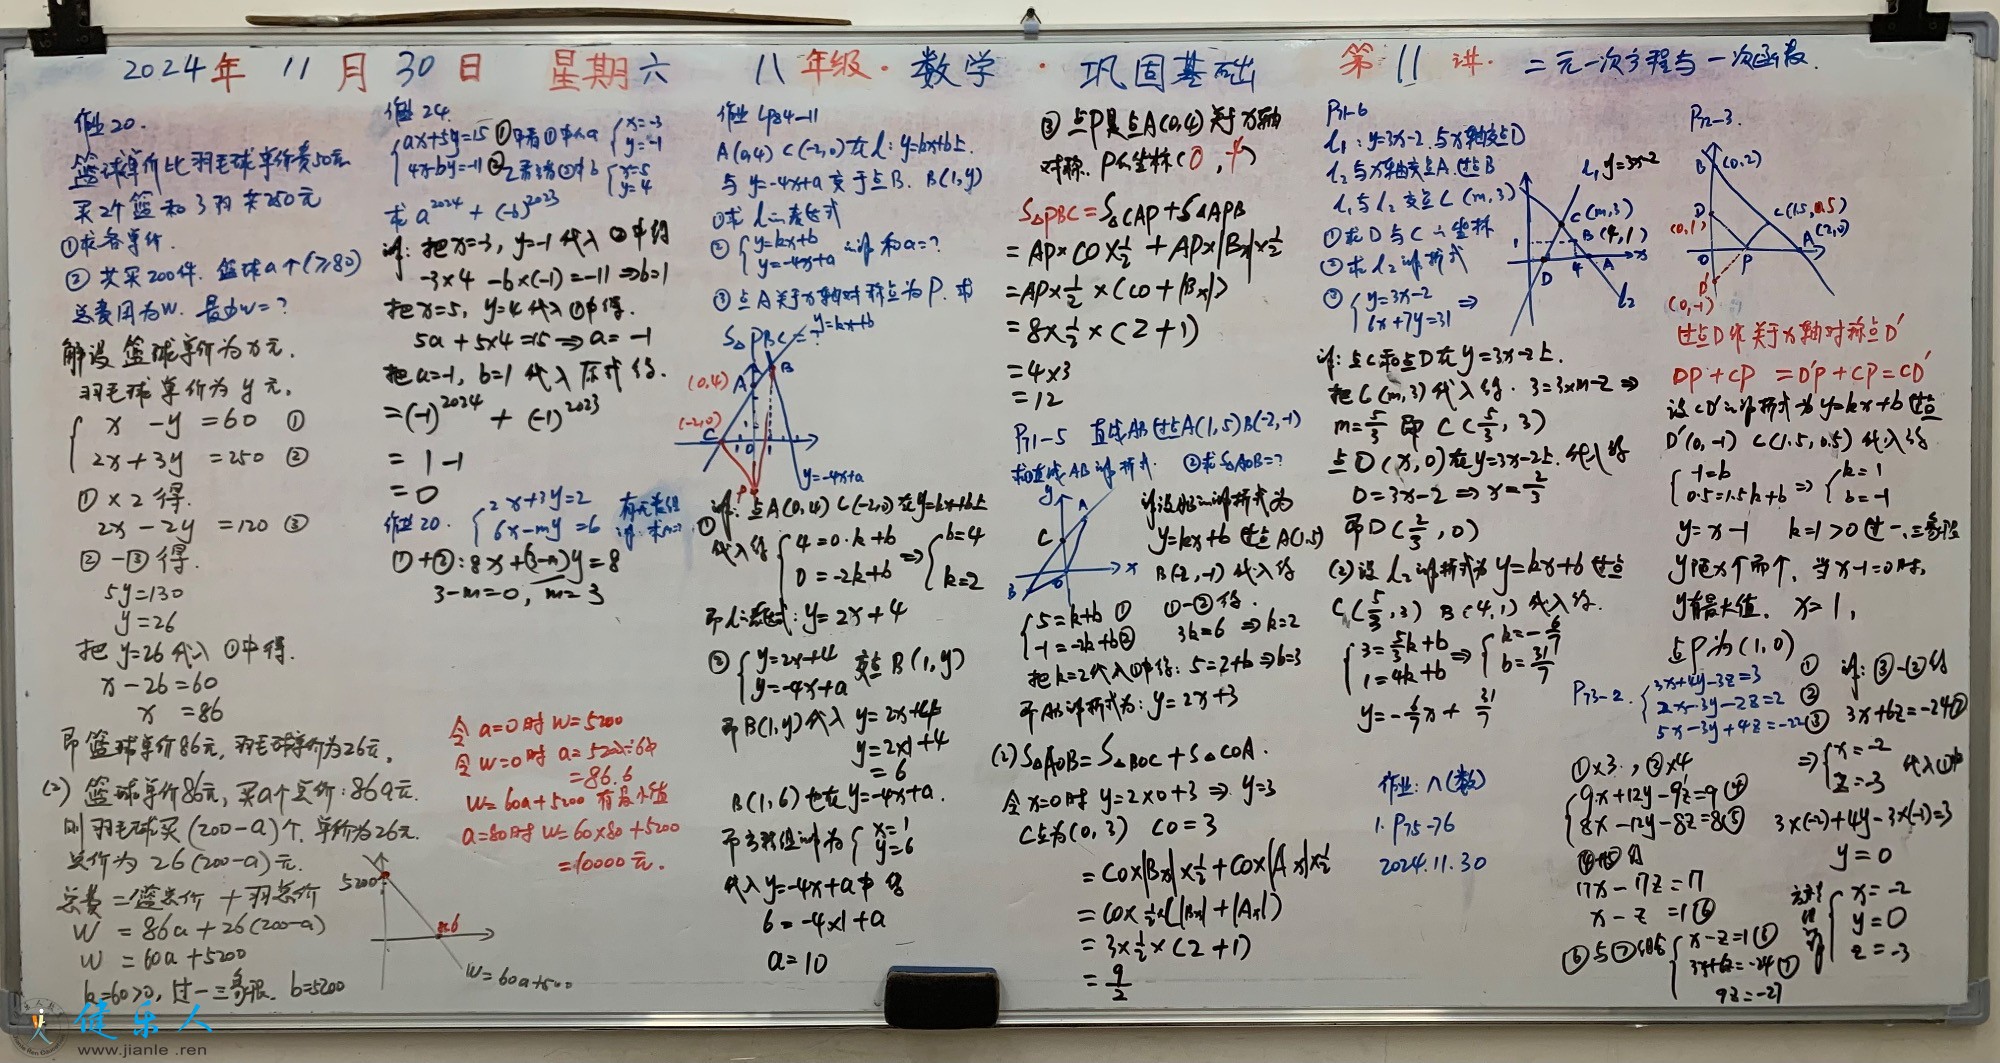 2024年 11月 30日 星期六 八年级·数学·巩固基础 第11讲·二元一次方程与一次函数.
作业20.
篮球单价比羽毛球单价贵50元
买2个篮和3羽共250元
①求各单价.
②共买200件. 篮球a个(≥80)
总费用为W. 最少w=?
解设篮球单价为x元.
羽毛球单价为y元.
x - y = 60 ①
2x + 3y = 250 ②
①×2得.
2x - 2y = 120 ③
②-③得.
5y = 130
y = 26
把y=26代入①中得.
x - 26 = 60
x = 86
即篮球单价86元, 羽毛球单价为26元.
(2) 篮球单价86元, 买a个总价: 86a元.
则羽毛球买(200-a)个. 单价为26元.
总价为26(200-a)元.
总费=篮总价+羽总价
W = 86a + 26(200-a)
W = 60a + 5200
k=60>0, 过一三象限. b=5200
5200
86.6
W=60a+5200
作业24.
ax+5y=15 ①甲看①中入a x=-3 y=-1
4x-by=-11 ②乙看错②中b x=5 y=4
求a^2024 + (-b)^2023
解: 把x=-3, y=-1代入②中得
-3×4 -b×(-1) = -11 ⇒ b=1
把x=5, y=4代入①中得.
5a + 5×4 = 15 ⇒ a = -1
把a=-1, b=1代入原式得.
= (-1)^2024 + (-1)^2023
= 1-1
= 0
作业20. 2x+3y=2
6x-my=6
①+②: 8x+(3-m)y=8
3-m=0, m=3
令a=0时 W=5200
令w=0时 a=5200÷60
=86.6
W=60a+5200 有最小值
a=80时 W=60×80+5200
=10000元.
作业 L P84-11
A(0,4) C(-2,0)在l: y=kx+b上.
与y=-4x+a交于点B. B(1,y)
①求l的表达式
② y=kx+b
y=-4x+a 的解和a=?
③点A关于x轴对称点为P. 求
S△PBC=?
y=kx+b
(0,4) A B
(-2,0) C
0 1
P
y=-4x+a
解: 点A(0,4) C(-2,0)在y=kx+b上
① 代入得 4=0·k+b
0=-2k+b ⇒ b=4
k=2
即l的表达式: y=2x+4
② y=2x+4
y=-4x+a 交点B(1,y)
即B(1,y)代入y=2x+4中
y=2×1+4
=6
B(1,6)也在y=-4x+a.
即方程组解为 x=1
y=6
代入y=-4x+a中得
6=-4×1+a
a=10
③点P是点A(0,4)关于x轴
对称. P的坐标(0, -4)
S△PBC=S△CAP+S△APB
=AP×CO×1/2 + AP×|Bx|×1/2
=AP×1/2×(CO+|Bx|)
=8×1/2×(2+1)
=4×3
=12
P71-5 直线AB过点A(1,5)B(-2,-1)
①求直线AB解析式. ②求S△AOB=?
y A
C
x
B 0
解设AB的解析式为
y=kx+b过点A(1,5)
B(-2,-1)代入得
5=k+b ①
-1=-2k+b ②
①-②得.
3k=6 ⇒ k=2
把k=2代入①中得: 5=2+b ⇒ b=3
即AB解析式为: y=2x+3
(2) S△AOB=S△BOC+S△COA.
令x=0时 y=2×0+3 ⇒ y=3
C点为(0,3) CO=3
=CO×|Bx|×1/2+CO×|Ax|×1/2
=CO×1/2×(|Bx|+|Ax|)
=3×1/2×(2+1)
=9/2
P71-6
l1: y=3x-2.与x轴交点D
l2与x轴交点A.过点B
l1与l2交点C(m,3)
①求D与C的坐标
②求l2解析式
③ y=3x-2
6x+7y=31 ⇒
l1 y=3x-2
C(m,3)
B(4,1)
1
D 4 A x
l2
解: 点C和点D在y=3x-2上.
把C(m,3)代入得. 3=3×m-2 ⇒
m=5/3 即C(5/3, 3)
点D(x,0)在y=3x-2上.代入得
0=3x-2 ⇒ x=2/3
即D(2/3, 0)
(2)设l2解析式为y=kx+b过点
C(5/3,3) B(4,1)代入得.
3=5/3k+b
1=4k+b ⇒ k=-6/7
b=31/7
y=-6/7x+31/7
作业: 八(数)
1. P75-76
2024.11.30
P72-3.
B (0,2)
D (0,1)
C(1.5,0.5)
A (2,0)
0 P
D'
(0,-1)
过点D作关于x轴对称点D'
DP+CP=D'P+CP=CD'
设CD'的解析式为y=kx+b过点
D'(0,-1) C(1.5,0.5)代入得
-1=b
0.5=1.5k+b ⇒ k=1
b=-1
y=x-1 k=1>0过一、三象限
y随x个而个. 当x-1=0时,
y有最大值. x=1,
点P为(1,0)
P73-2. 3x+4y-3z=3 ①
2x-3y-2z=2 ②
5x-3y+4z=-22 ③
解: ③-②得
3x+6z=-24 ⑦
①×3, ②×4
9x+12y-9z=9 ④
8x-12y-8z=8 ⑤
④+⑤得
17x-17z=17
x-z=1 ⑥
⑥与⑦组 x-z=1 ⑥
3x+6z=-24 ⑦
9z=-27
⇒ x=-2
z=-3 代入①中
3×(-2)+4y-3×(-3)=3
y=0
方程组解
x=-2
y=0
z=-3
健乐人
www.jianle.ren